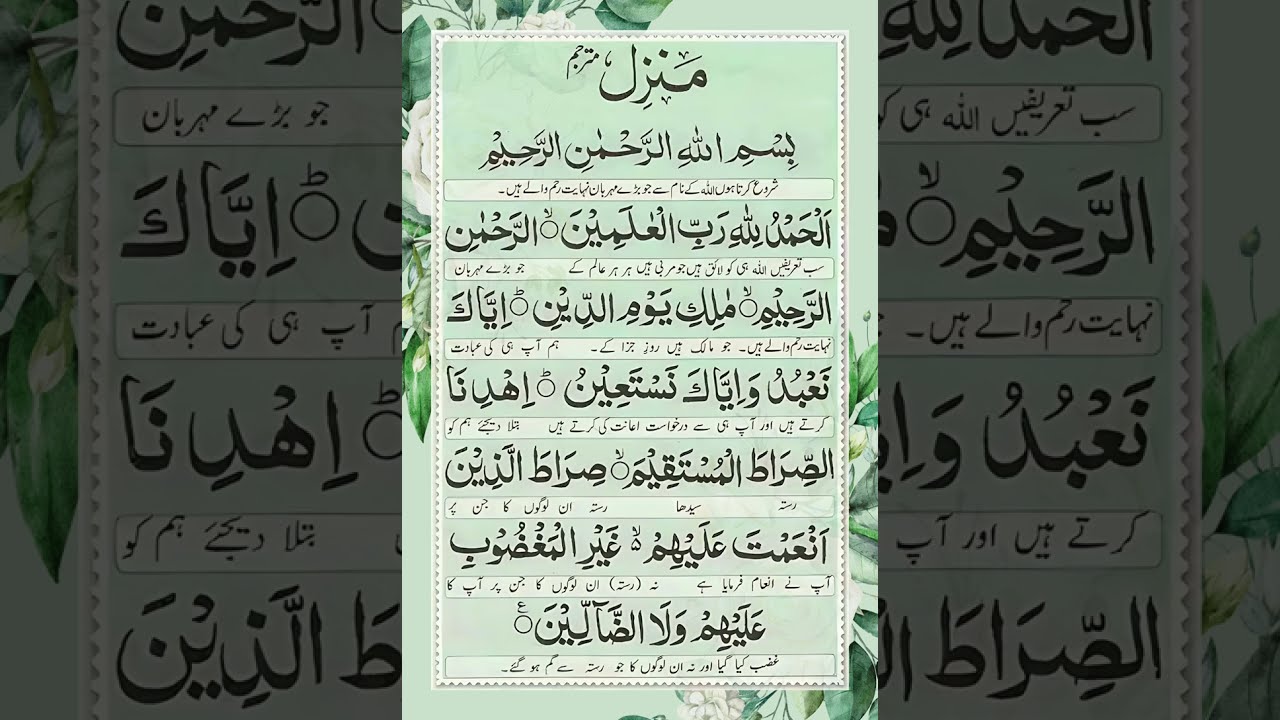 مَنْزِل مترجم
بِسْمِ اللهِ الرَّحْمٰنِ الرَّحِيْمِ
شروع کرتا ہوں اللہ کے نام سے جو بڑے مہربان نہایت رحم والے ہیں۔
اَلْحَمْدُ لِلّٰهِ رَبِّ الْعٰلَمِيْنَ ۙ الرَّحْمٰنِ
سب تعریفیں اللہ ہی کو لائق ہیں جو مربی ہیں ہر ہر عالم کے جو بڑے مہربان
الرَّحِيْمِ ۙ مٰلِكِ يَوْمِ الدِّيْنِ ؕ اِيَّاكَ
نہایت رحم والے ہیں۔ جو مالک ہیں روز جزا کے۔ ہم آپ ہی کی عبادت
نَعْبُدُ وَاِيَّاكَ نَسْتَعِيْنُ ؕ اِهْدِنَا
کرتے ہیں اور آپ ہی سے درخواست اعانت کی کرتے ہیں بتلا دیجئے ہم کو
الصِّرَاطَ الْمُسْتَقِيْمَ ۙ صِرَاطَ الَّذِيْنَ
رستہ سیدھا رستہ ان لوگوں کا جن پر
اَنْعَمْتَ عَلَيْهِمْ ۙ۬ غَيْرِ الْمَغْضُوْبِ
آپ نے انعام فرمایا ہے نہ (رستہ) ان لوگوں کا جن پر آپ کا
عَلَيْهِمْ وَلَا الضَّآلِّيْنَ ۠
غضب کیا گیا اور نہ ان لوگوں کا جو رستہ سے گم ہو گئے۔